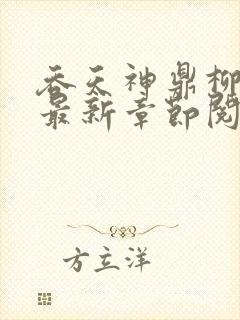 吞天神鼎柳
最新章节阅
方立洋